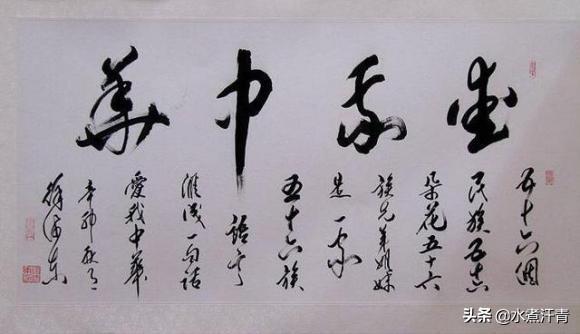 愛我中華
五十六個
民族五十六
朵花五十六
族兄弟姐妹
是一家
五十六族
語言
匯成一句話
愛我中華
辛卯秋月
头条 @水煮汗青